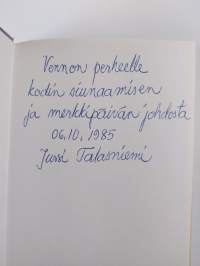 Vornon perheelle
kodin siunaamisen
ja merkkipäivän johdosta
06.10.1985
Jussi Talasniemi